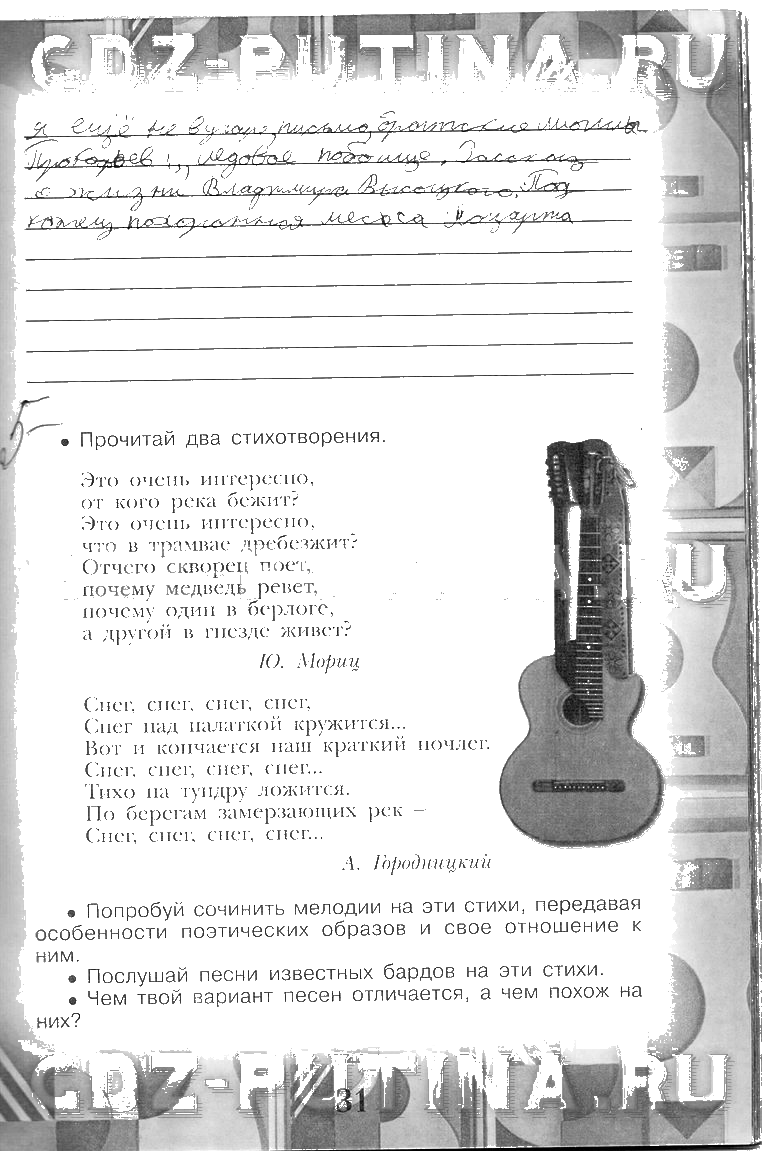 GDZ-PUTINA.RU
я ещё не в ударе, письмо, братские могилы
Прокофьев: „ Ледовое побоище. Рассказ
о жизни Владимира Высоцкого. Под
конец похоронная Моцарта
5-
• Прочитай два стихотворения.
Это очень интересно,
от кого река бежит?
Это очень интересно,
что в трамвае дребезжит?
Отчего скворец поет,
почему медведь ревет,
почему один в берлоге,
а другой в гнезде живет?
Ю. Мориц
Снег, снег, снег, снег,
Снег над палаткой кружится...
Вот и кончается наш краткий ночлег.
Снег, снег, снег, снег...
Тихо на тундру ложится.
По берегам замерзающих рек –
Снег, снег, снег, снег...
А. Городницкий
• Попробуй сочинить мелодии на эти стихи, передавая
особенности поэтических образов и свое отношение к
ним.
• Послушай песни известных бардов на эти стихи.
• Чем твой вариант песен отличается, а чем похож на
них?
GDZ-PUTINA.RU
31